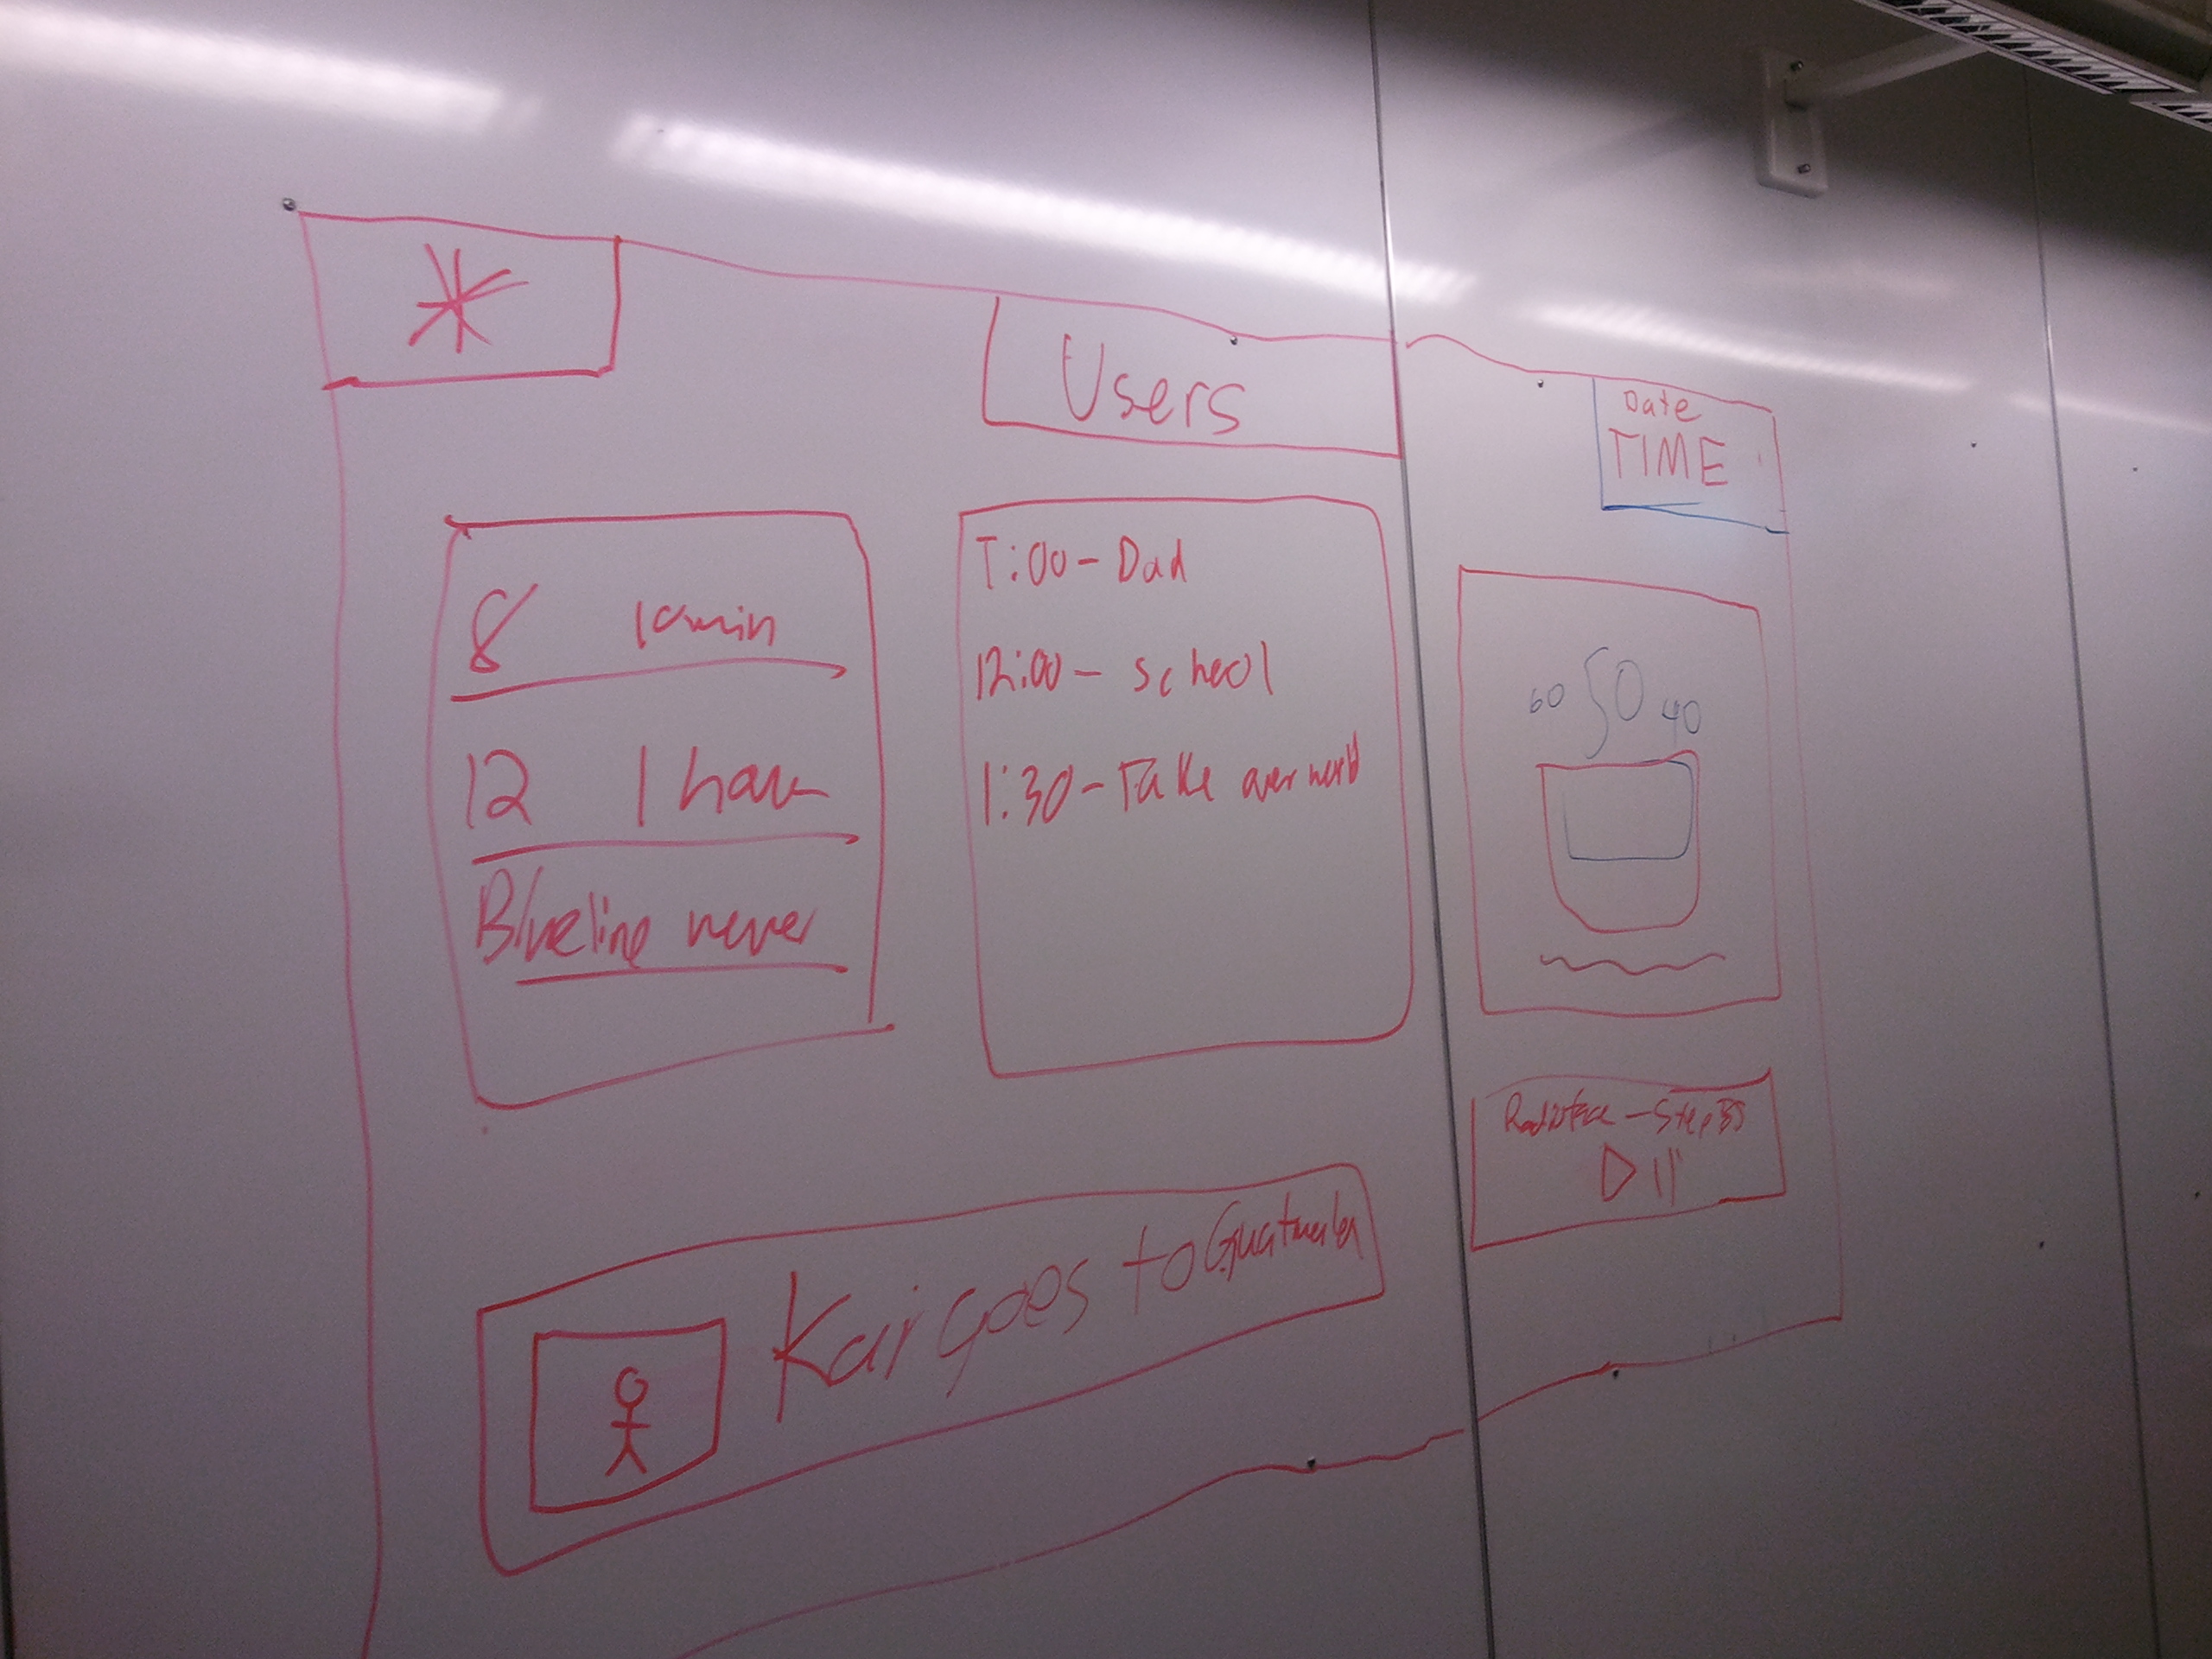 Users
Date
TIME
8 10min
12 1 hour
Blueline never
7:00 - Dad
12:00 - school
1:30 - Take over world
60 50 40
Kai goes to Guatmala